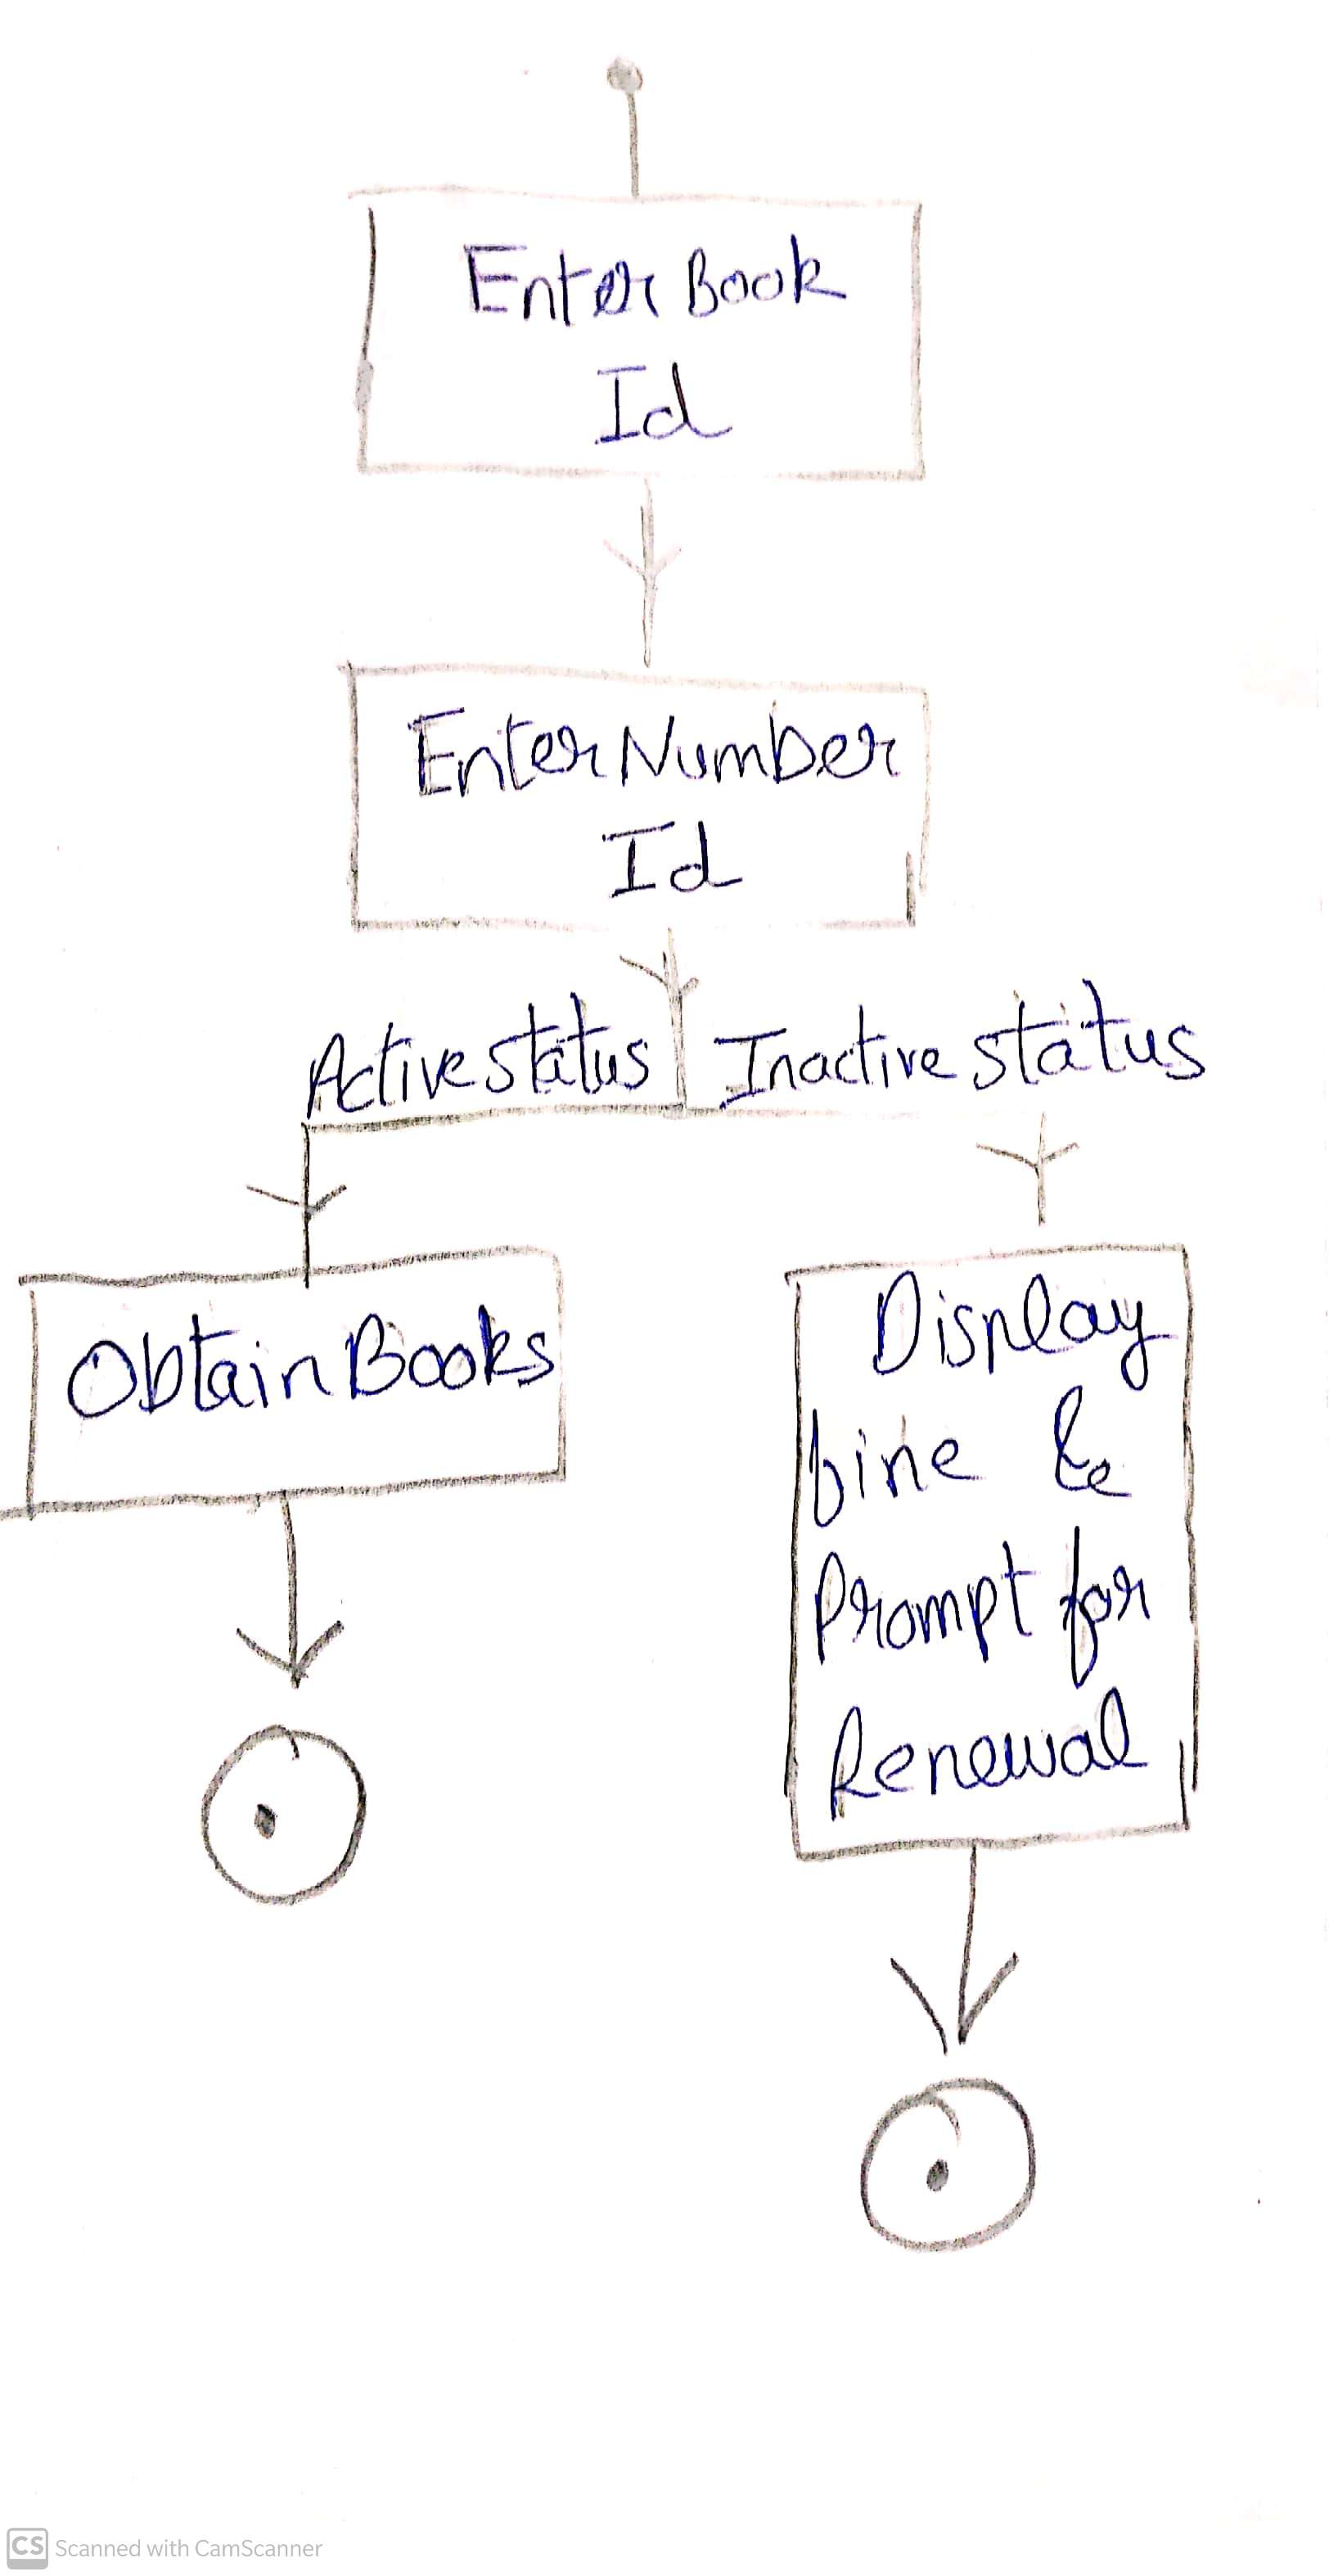 Enter Book
Id
Enter Number
Id
Active status
Inactive status
Obtain Books
Display
fine &
Prompt for
Renewal
CS Scanned with CamScanner